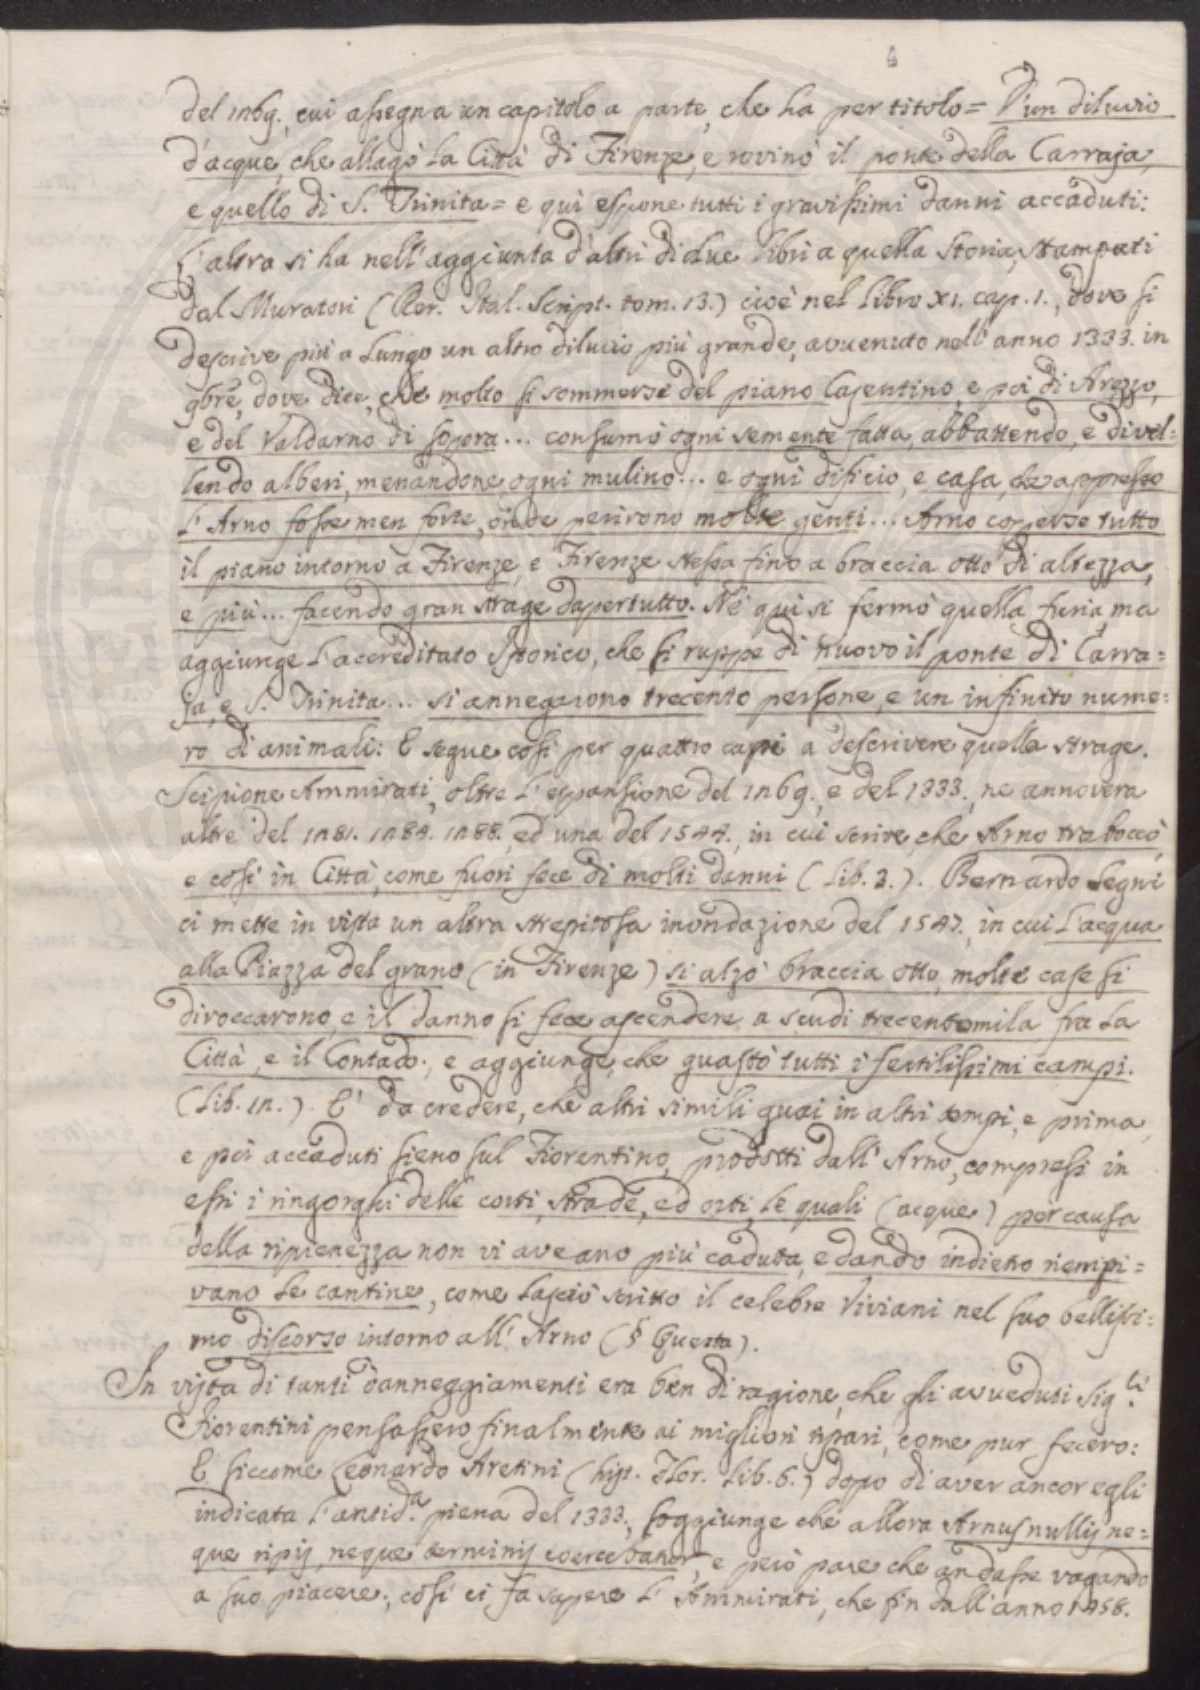 4
del 1269., cui assegna un capitolo a parte, che ha per titolo = D'un diluvio
d'acque, che allagò la Città di Firenze, e rovinò il ponte della Carraja,
e quello di S. Trinita = e quì espone tutti i gravissimi danni accaduti:
L'altra si ha nell'aggiunta d'altri di due libri a quella Storia, stampati
dal Muratori (Rer. Ital. Script. tom. 13.) cioè nel libro XI. cap. 1., dove si
descrive più a lungo un altro diluvio più grande, avvenuto nell'anno 1333. in
9bre, dove dice, che molto si sommerse del piano Casentino, e poi di Arezzo,
e del Valdarno di sopra... consumò ogni semente fatta, abbattendo, e divel=
lendo alberi, menandone ogni mulino... e ogni dificio, e casa, che appresso
l'Arno fosse men forte, onde perirono molte genti... Arno coperse tutto
il piano intorno a Firenze, e Firenze stessa fino a braccia otto di altezza,
e più... facendo gran strage dapertutto. Nè qui si fermò quella furia, ma
aggiunge l'accreditato Storico, che si ruppe di nuovo il ponte di Carra=
ja, e S. Trinita... si annegarono trecento persone, e un infinito nume=
ro di animali: E segue così per quattro capi a descrivere quella strage.
Scipione Ammirati, oltre l'espansione del 1269., e del 1333., ne annovera
altre del 1281. 1284. 1288., ed una del 1544., in cui scrive, che Arno traboccò,
e così in Città, come fuori fece di molti danni (Lib. 3.). Bernardo Segni
ci mette in vista un altra strepitosa inondazione del 1547., in cui l'acqua
alla Piazza del grano (in Firenze) si alzò braccia otto, molte case si
diroccarono, e il danno si fece ascendere a scudi trecentomila fra la
Città, e il Contado; e aggiunge, che guastò tutti i fertilissimi campi.
(Lib. 12.). E' da credere, che altri simili guai in altri tempi, e prima,
e poi accaduti sieno sul Fiorentino, prodotti dall'Arno, compresi in
essi i ringorghi delle corti, strade, ed orti, le quali (acque) per causa
della ripienezza non vi aveano più caduta, e dando indietro riempi=
vano le cantine, come lasciò scritto il celebre Viviani nel suo bellissi=
mo discorso intorno all'Arno (§ Questa).
In vista di tanti danneggiamenti era ben di ragione, che gli avveduti Sig.li
Fiorentini pensassero finalmente ai migliori ripari, come pur fecero:
E siccome Leonardo Aretini (hist. Flor. Lib. 6.) dopo di aver ancor egli
indicata l'antid.a piena del 1333., soggiunge che allora Arnus nullis ne=
que ripis, neque terminis coercebatur, e però pare che andasse vagando
a suo piacere; così ci fa sapere l'Ammirati, che fin dall'anno 1458.